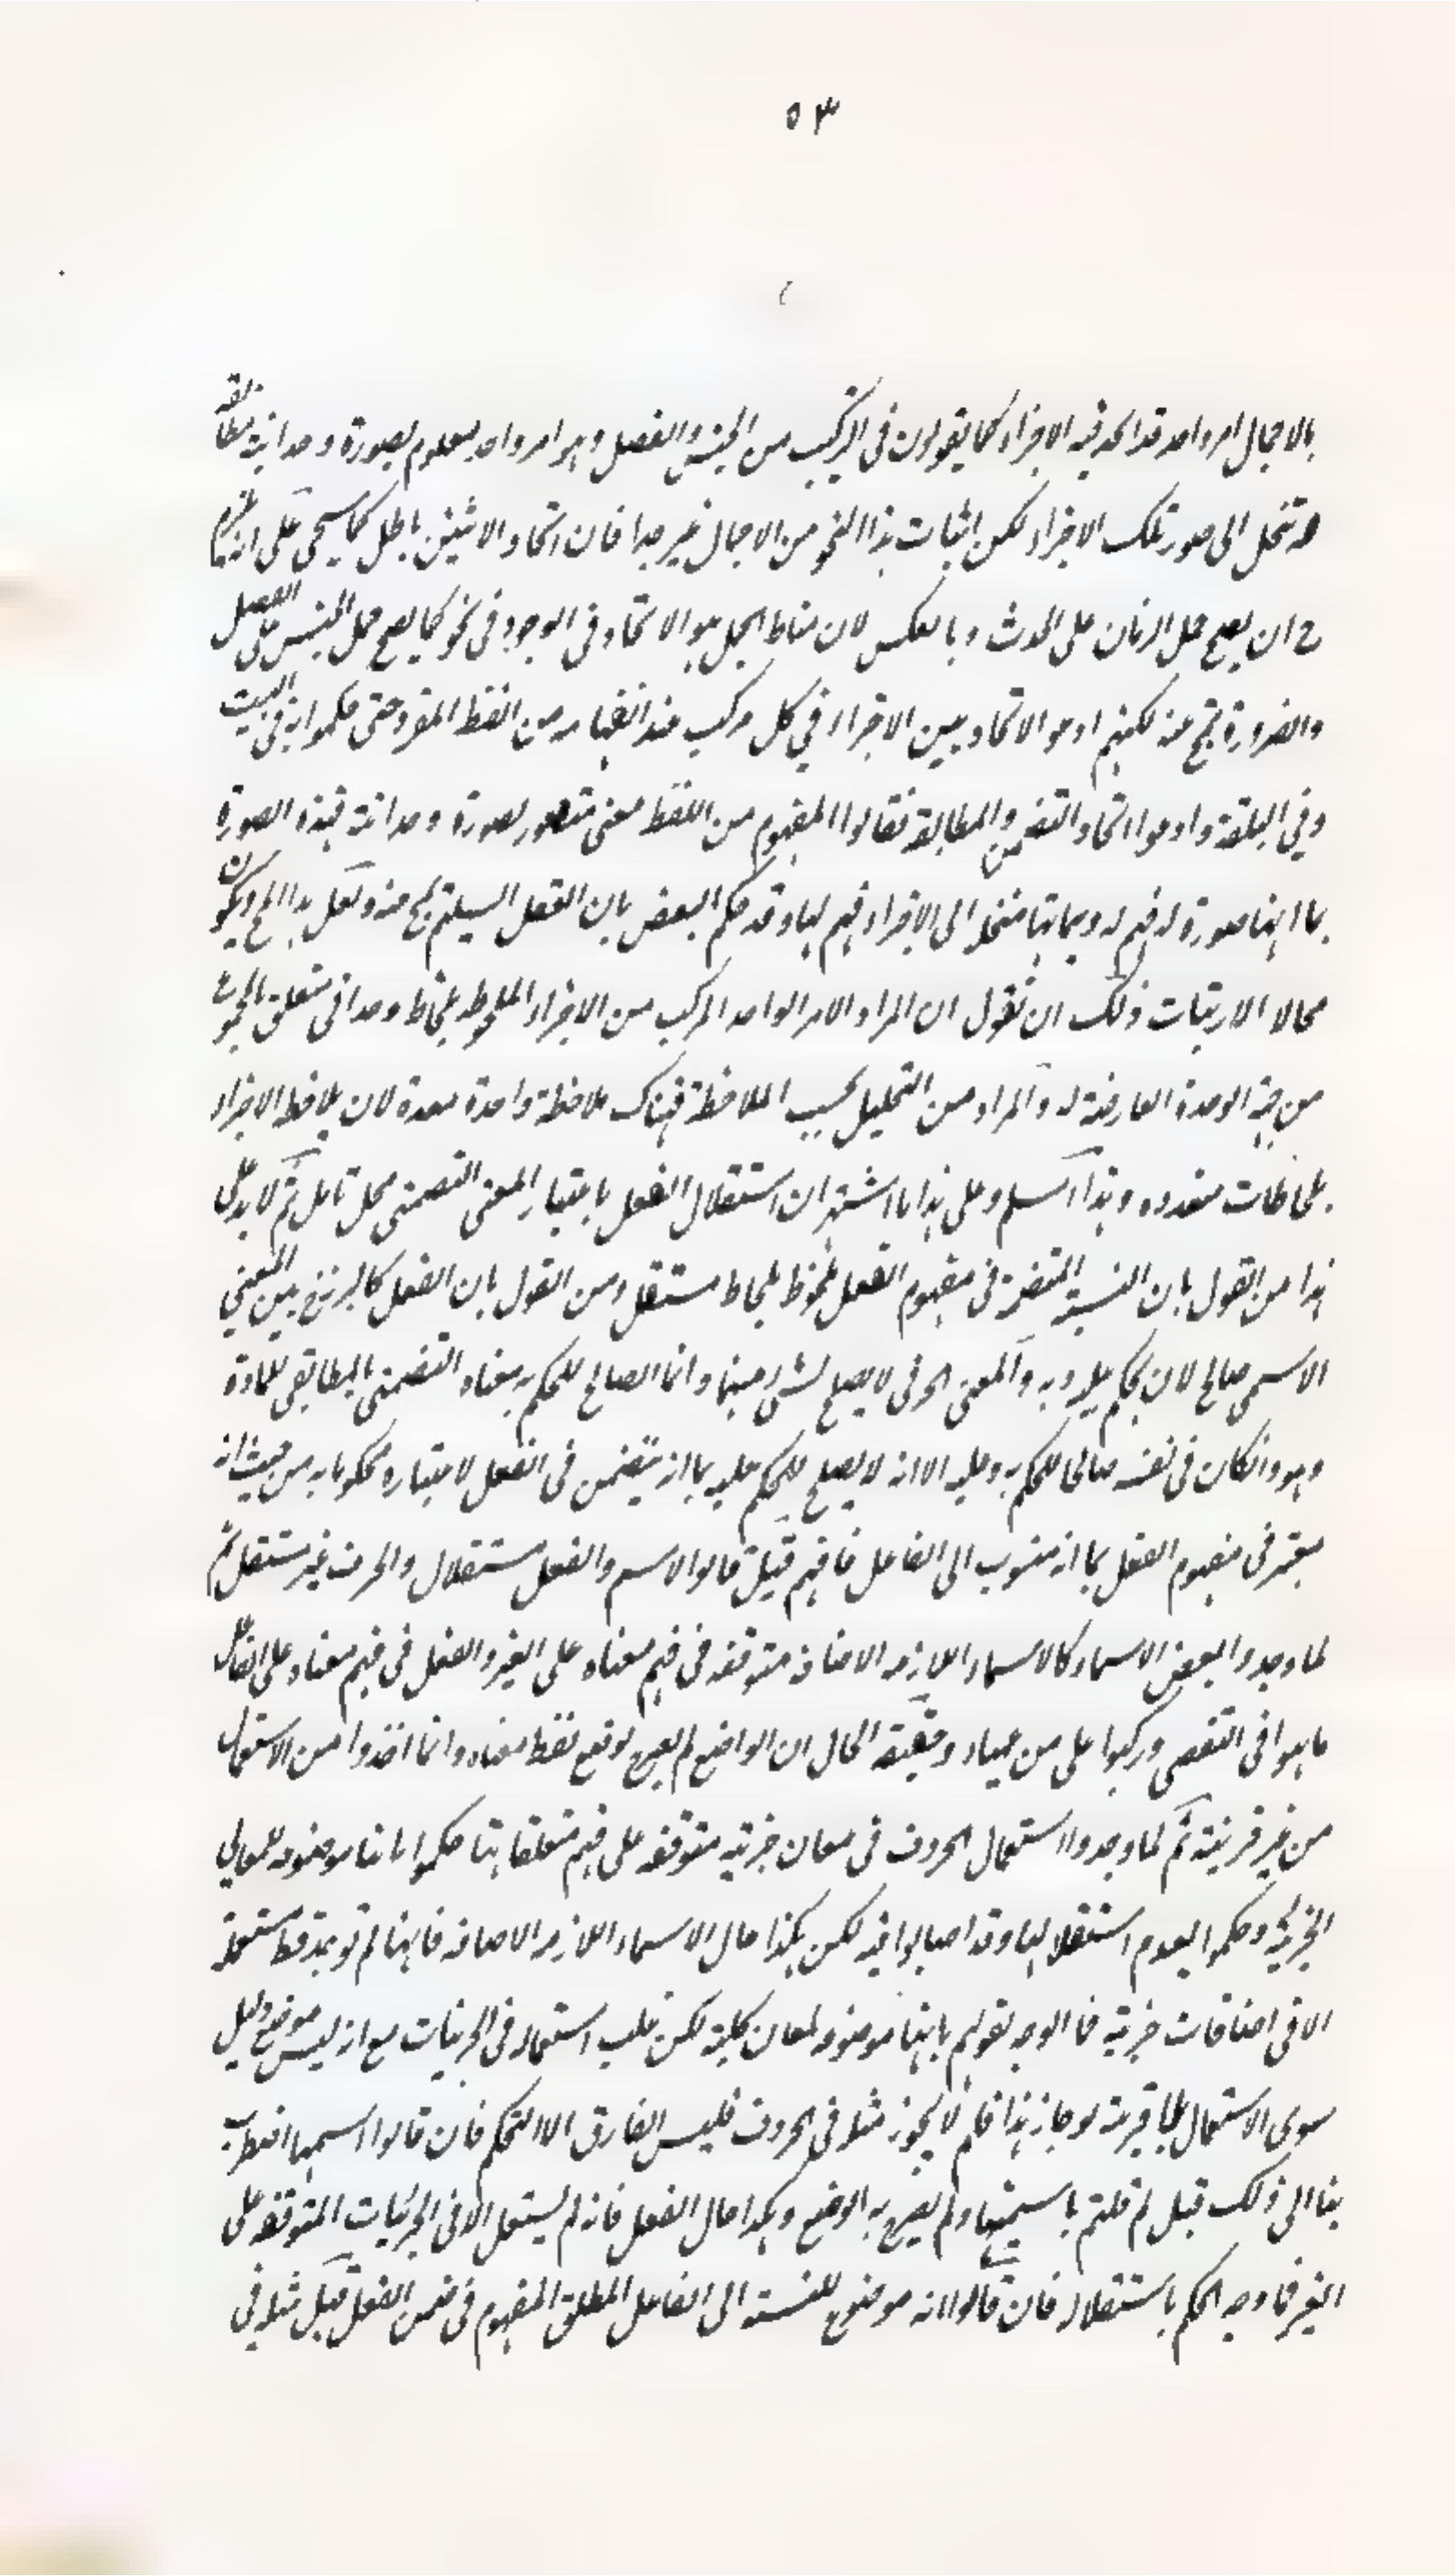 ٥٣
بالاجمال امر واحد قد اتحد فيه الاجزاء كما يقولون فى التركيب من الجنس والفصل وهو امر واحد معلوم بصورة وحدانية مطابقة
قد تنحل الى صور تلك الاجزاء لكن اثبات هذا النحو من الاجمال عسير جدا فان اتحاد الاثنين باطل كما سيجئ على انه يلزم
ح ان يصح حمل الزمان على الحدث وبالعكس لان مناط الحمل هو الاتحاد فى الوجود فى نحو كما يصح حمل الجنس على الفصل
والضرورة تمج عنه لكنهم ادعوا الاتحاد بين الاجزاء في كل مركب عند انفهامه من اللفظ المفرد حتى حكموا به فى البيت
وفي البلقة وادعوا اتحاد التضمن والمطابقة فقالوا المفهوم من اللفظ معنى متصور بصورة وحدانية فهذه الصورة
بما انها صورة له فهم له وبما انها منحلة الى الاجزاء فهم لها وقد حكم البعض بان العقل السليم يمج عنه ولعل هذا المج ويكون
محالا الارتيات ولك ان تقول ان المراد الامر الواحد المركب من الاجزاء الملحوظ بلحاظ وحدانى متعلق بالمجموع
من جهة الوحدة العارضة له والمراد من التحليل بحسب الملاحظة فهناك ملاحظة واحدة معدة لان يلاحظ الاجزاء
بلحاظات متعدده وهذا اسلم وعلى هذا ما اشتهر ان استقلال الفعل باعتبار المعنى التضمنى محل تامل ثم لا بد على
هذا من القول بان النسبة المتضمنة فى مفهوم الفعل ملحوظ بلحاظ مستقل ومن القول بان الفعل كالبرزخ بين المعنيين
الاسمى صالح لان يحكم عليه وبه والمعنى الحرفى لا يصلح لشئ منهما وانما الصالح للحكم به معناه التضمنى المطابقى للمادة
وهو وانكان فى نفسه صالحا للحكم به وعليه الا انه لا يصلح للحكم عليه بما انه يتضمن فى الفعل لاعتباره محكوما به من حيث انه
معتبر فى مفهوم الفعل بما انه منسوب الى الفاعل فافهم قيل قالوا الاسم والفعل مستقلان والحرف غير مستقل ثم
لما وجدوا البعض الاسماء كالاسماء اللازمة الاضافة متوقفه فى فهم معناه على الغير والفعل فى فهم معناه على الفاعل
هاموا فى التقصى وركبوا على من عمياء وحقيقة الحال ان الواضع لم يصرح لوضع لفظ معناه وانما اخذوا من الاستعمال
من غير قرينة ثم لما وجدوا استعمال الحروف فى معان جزئية متوقفه على فهم متعلقاتها حكموا بانها موضوعة للمعانى
الجزئية وحكموا بعدم استقلالها وقد اصابوا فيه لكن هكذا حال الاسماء اللازمة الاضافة فانها لم توجد قط مستعملة
الا فى اضافات جزئية فما الوجه لقولهم بانها موضوعة لمعان كلية لكن غلب استعماله فى الجزئيات مع انه ليس موضع دليل
سوى الاستعمال بلا قرينة لو جاز هذا فلم لا يجوز مثله فى الحروف فليس الفارق الا التحكم فان قالوا اسميتها اضطرت
بنا الى ذلك قيل لم قلتم باسميتها ولم يصرح به الواضع وهكذا حال الفعل فانه لم يستعمل الا فى الجزئيات المتوقفة على
الغير فما وجه الحكم باستقلاله فان قالوا انه موضوع للنسبة الى الفاعل المطلق المفهوم فى ضمن الفعل قيل مثله فى